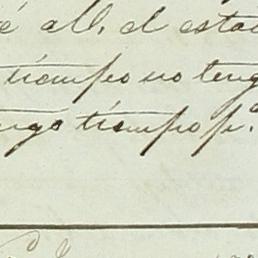 é all. el estad
tiempo no teng
engo tiempo p.ª